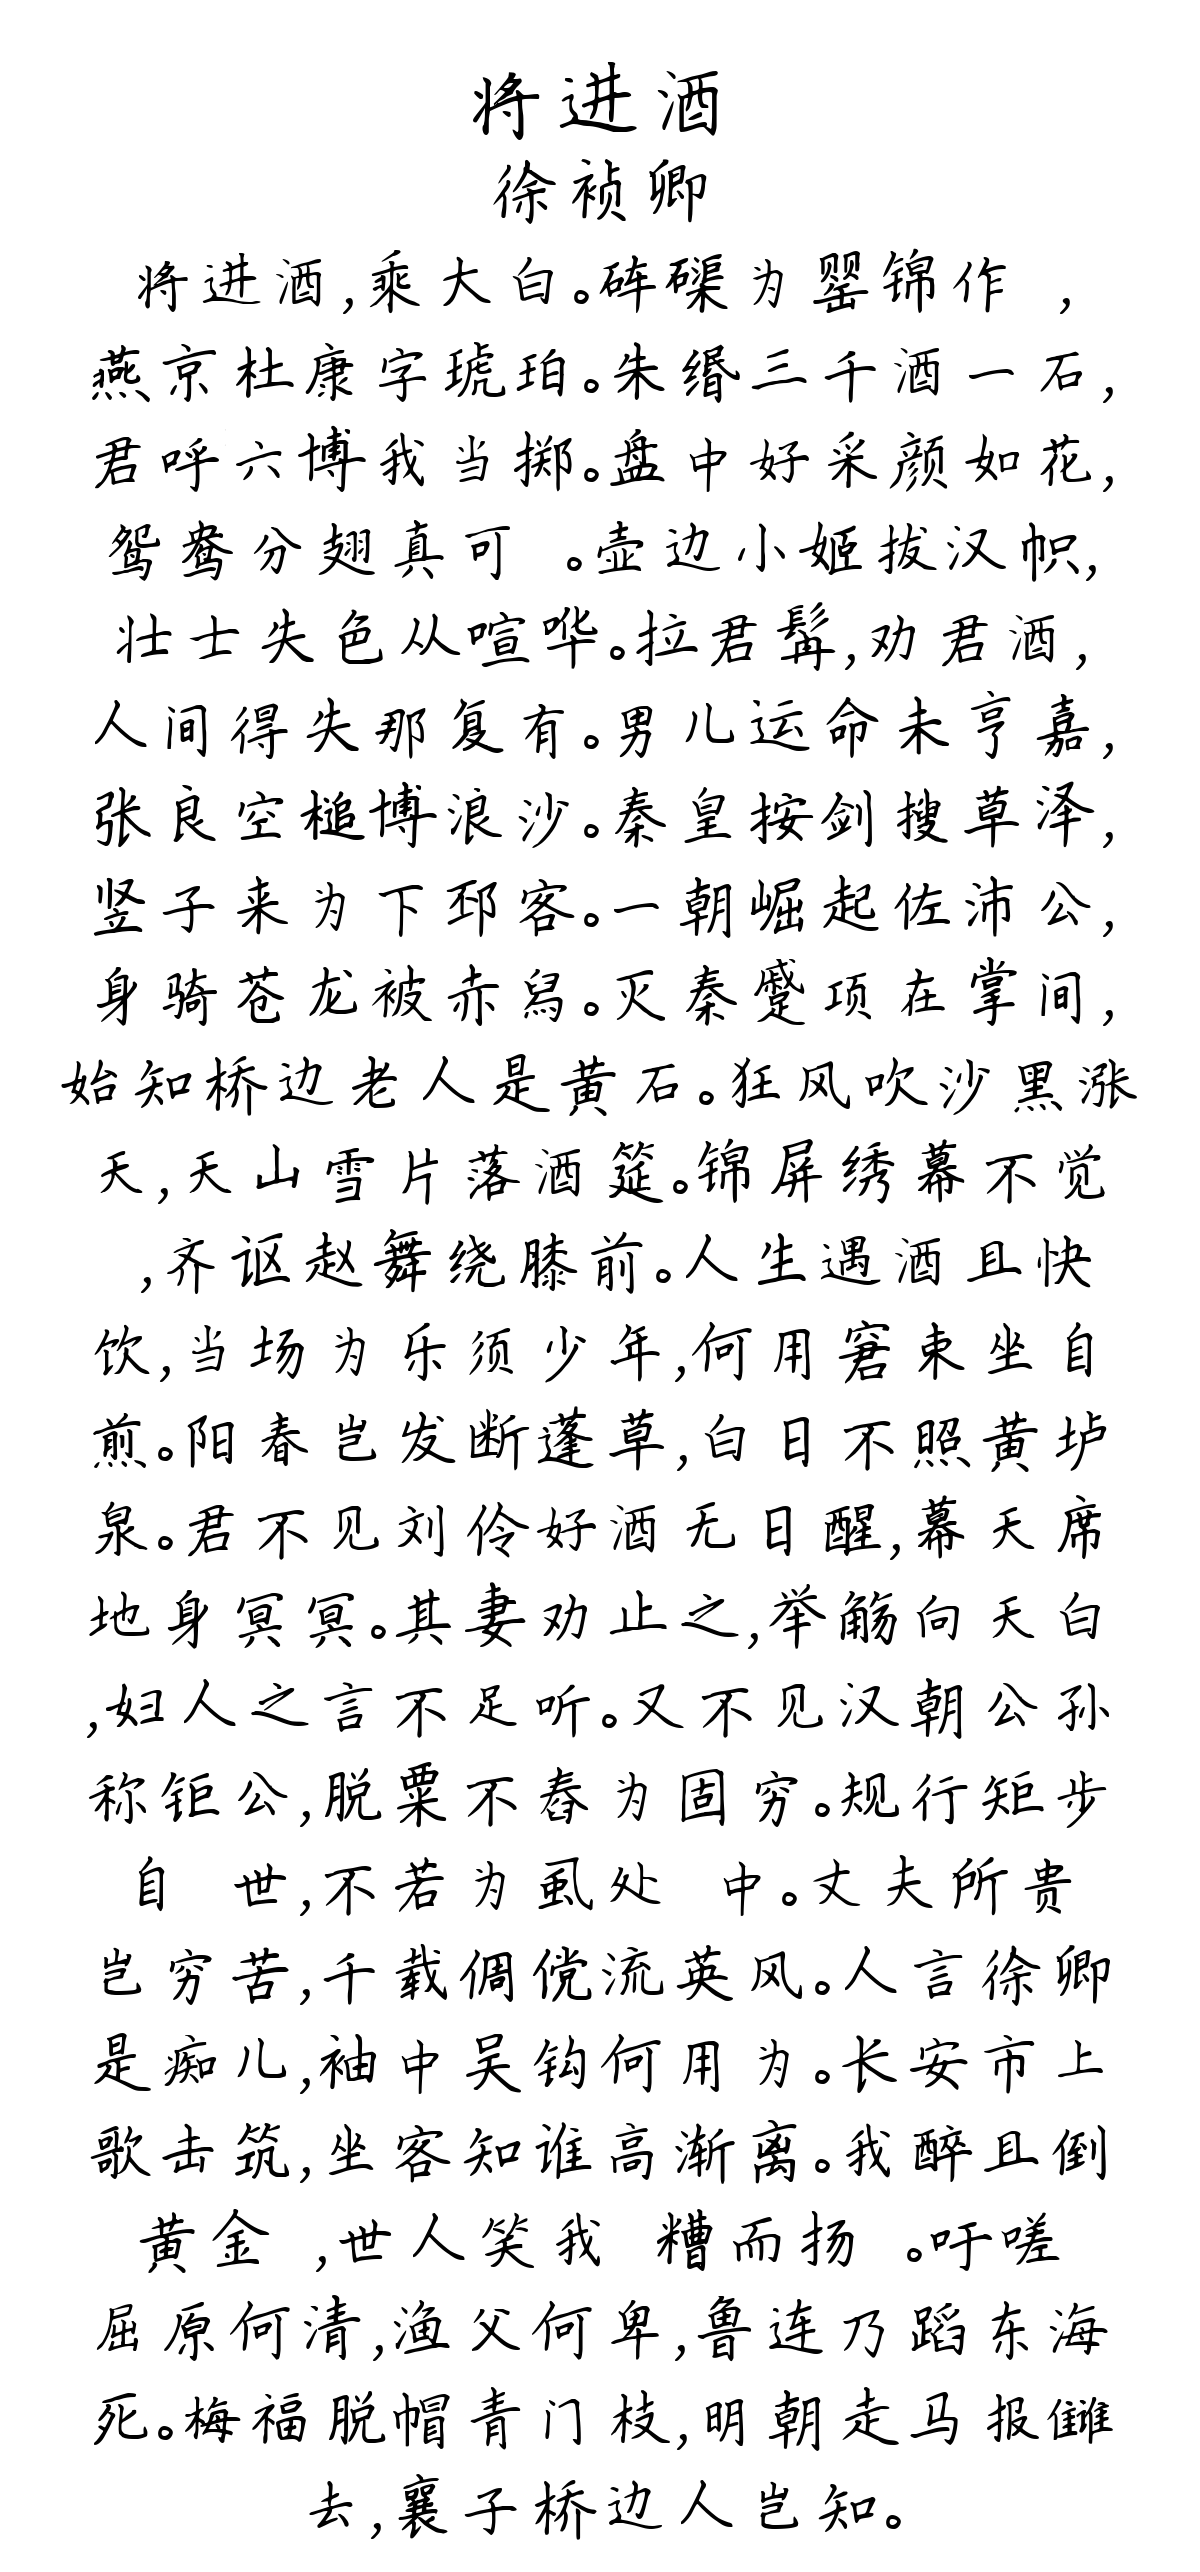 将进酒
徐祯卿
将进酒,乘大白。砗磲为罂锦作 ,
燕京杜康字琥珀。朱缗三千酒一石,
君呼六博我当掷。盘中好采颜如花,
鸳鸯分翅真可 。壶边小姬拔汉帜,
壮士失色从喧哗。拉君髯,劝君酒,
人间得失那复有。男儿运命未亨嘉,
张良空槌博浪沙。秦皇按剑搜草泽,
竖子来为下邳客。一朝崛起佐沛公,
身骑苍龙被赤舄。灭秦蹙项在掌间,
始知桥边老人是黄石。狂风吹沙黑涨
天,天山雪片落酒筵。锦屏绣幕不觉
,齐讴赵舞绕膝前。人生遇酒且快
饮,当场为乐须少年,何用窘束坐自
煎。阳春岂发断蓬草,白日不照黄垆
泉。君不见刘伶好酒无日醒,幕天席
地身冥冥。其妻劝止之,举觞向天白
,妇人之言不足听。又不见汉朝公孙
称钜公,脱粟不舂为固穷。规行矩步
自 世,不若为虱处 中。丈夫所贵
岂穷苦,千载倜傥流英风。人言徐卿
是痴儿,袖中吴钩何用为。长安市上
歌击筑,坐客知谁高渐离。我醉且倒
黄金 ,世人笑我 糟而扬 。吁嗟
屈原何清,渔父何卑,鲁连乃蹈东海
死。梅福脱帽青门枝,明朝走马报雠
去,襄子桥边人岂知。